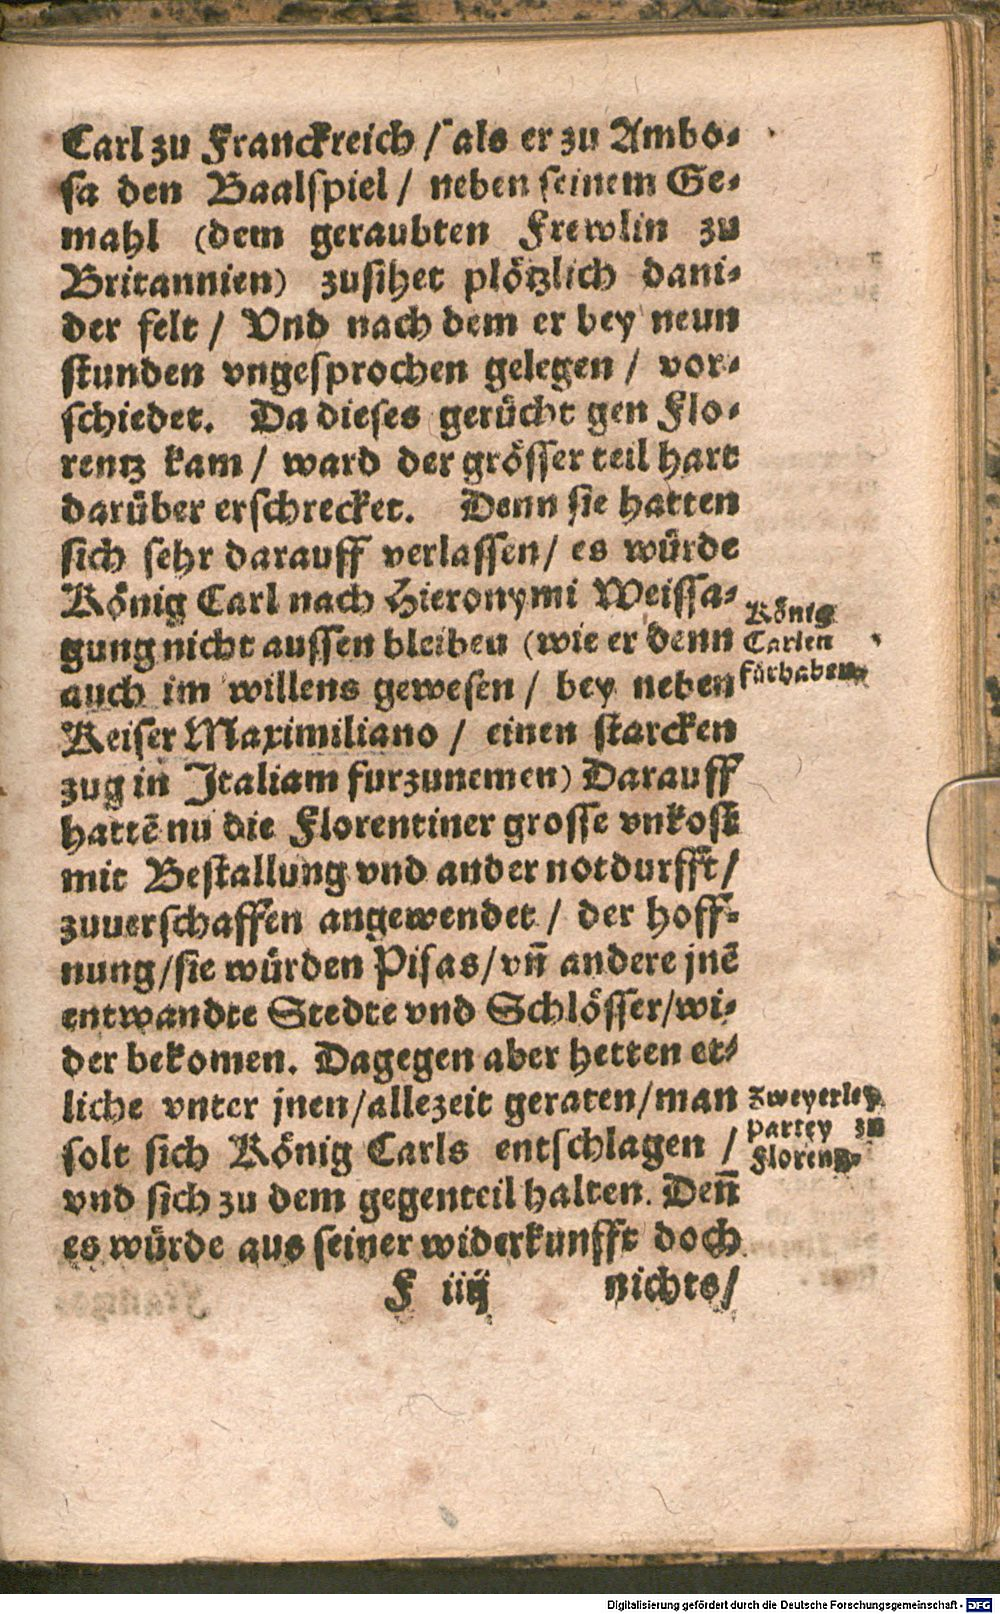 Carl zu Franckreich / als er zu Ambo-
sa den Baalspiel / neben seinem Ge-
mahl (dem geraubten Frewlin zu
Britannien) zusihet plötzlich dani-
der felt / Vnd nach dem er bey neun
stunden vngesprochen gelegen / vor-
schiedet. Da dieses gerücht gen Flo-
rentz kam / ward der grösser teil hart
darüber erschrecket. Denn sie hatten
sich sehr darauff verlassen / es würde
König Carl nach Hieronymi Weissa-
gung nicht aussen bleiben (wie er denn
auch im willens gewesen / bey neben
Keiser Maximiliano / einen starcken
zug in Italiam furzunemen) Darauff
hattē nu die Florentiner grosse vnkost
mit Bestallung vnd ander notdurfft /
zuuerschaffen angewendet / der hoff-
nung / sie würden Pisas / vn̄ andere jnē
entwandte Stedte vnd Schlösser / wi-
der bekomen. Dagegen aber hetten et-
liche vnter jnen / allezeit geraten / man
solt sich König Carls entschlagen /
vnd sich zu dem gegenteil halten. Den̄
es würde aus seiner widerkunfft doch
F iiij nichts /
König
Carlen
fürhaben.
Zweyerley
partey zu
Florentz.
Digitalisierung gefördert durch die Deutsche Forschungsgemeinschaft - DFG